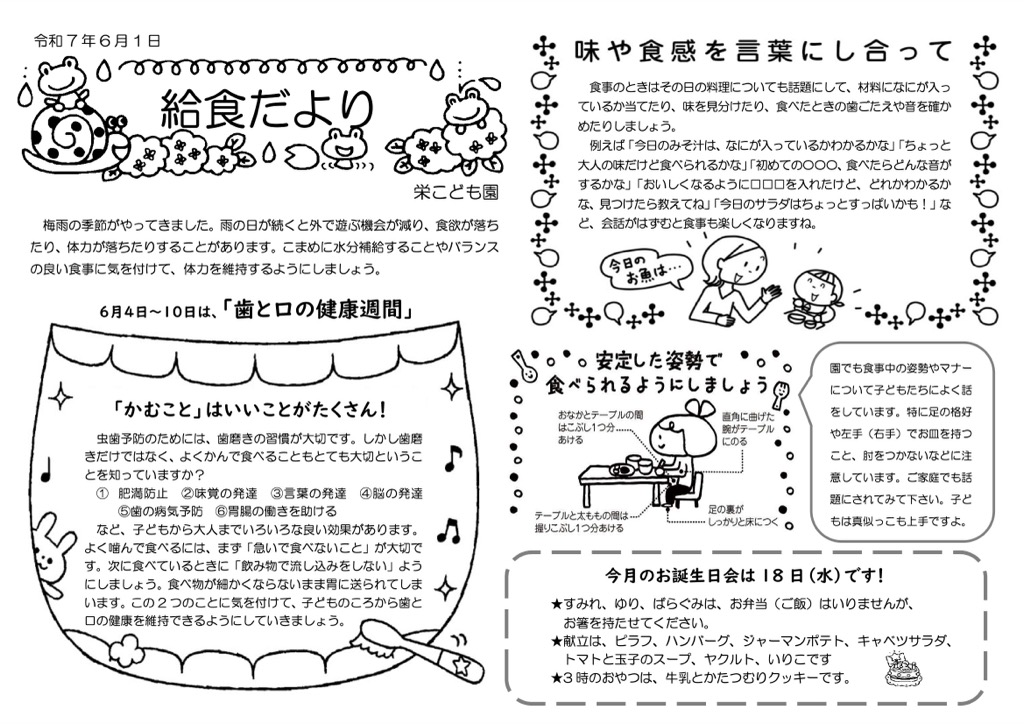 令和７年６月１日
給食だより
栄こども園
梅雨の季節がやってきました。雨の日が続くと外で遊ぶ機会が減り、食欲が落ち
たり、体力が落ちたりすることがあります。こまめに水分補給することやバランス
の良い食事に気を付けて、体力を維持するようにしましょう。
6月4日～10日は、「歯と口の健康週間」
「かむこと」はいいことがたくさん！
虫歯予防のためには、歯磨きの習慣が大切です。しかし歯磨
きだけではなく、よくかんで食べることもとても大切というこ
とを知っていますか？
① 肥満防止 ②味覚の発達 ③言葉の発達 ④脳の発達
⑤歯の病気予防 ⑥胃腸の働きを助ける
など、子どもから大人までいろいろな良い効果があります。
よく噛んで食べるには、まず「急いで食べないこと」が大切で
す。次に食べているときに「飲み物で流し込みをしない」よう
にしましょう。食べ物が細かくならないまま胃に送られてしま
います。この２つのことに気を付けて、子どものころから歯と
口の健康を維持できるようにしていきましょう。
味や食感を言葉にし合って
食事のときはその日の料理についても話題にして、材料になにが入っ
ているか当てたり、味を見分けたり、食べたときの歯ごたえや音を確か
めたりしましょう。
例えば「今日のみそ汁は、なにが入っているかわかるかな」「ちょっと
大人の味だけど食べられるかな」「初めての〇〇〇、食べたらどんな音が
するかな」「おいしくなるように□□□を入れたけど、どれかわかるか
な、見つけたら教えてね」「今日のサラダはちょっとすっぱいかも！」な
ど、会話がはずむと食事も楽しくなりますね。
今日の
お魚は…
安定した姿勢で
食べられるようにしましょう
おなかとテーブルの間
はこぶし1つ分
あける
直角に曲げた
腕がテーブル
にのる
テーブルと太ももの間は
握りこぶし1つ分あける
足の裏が
しっかりと床につく
園でも食事中の姿勢やマナー
について子どもたちによく話
をしています。特に足の格好
や左手（右手）でお皿を持つ
こと、肘をつかないなどに注
意しています。ご家庭でも話
題にされてみて下さい。子ど
もは真似っこも上手ですよ。
今月のお誕生日会は 18 日（水）です！
★すみれ、ゆり、ばらぐみは、お弁当（ご飯）はいりませんが、
お箸を持たせてください。
★献立は、ピラフ、ハンバーグ、ジャーマンポテト、キャベツサラダ、
トマトと玉子のスープ、ヤクルト、いりこです
★３時のおやつは、牛乳とかたつむりクッキーです。